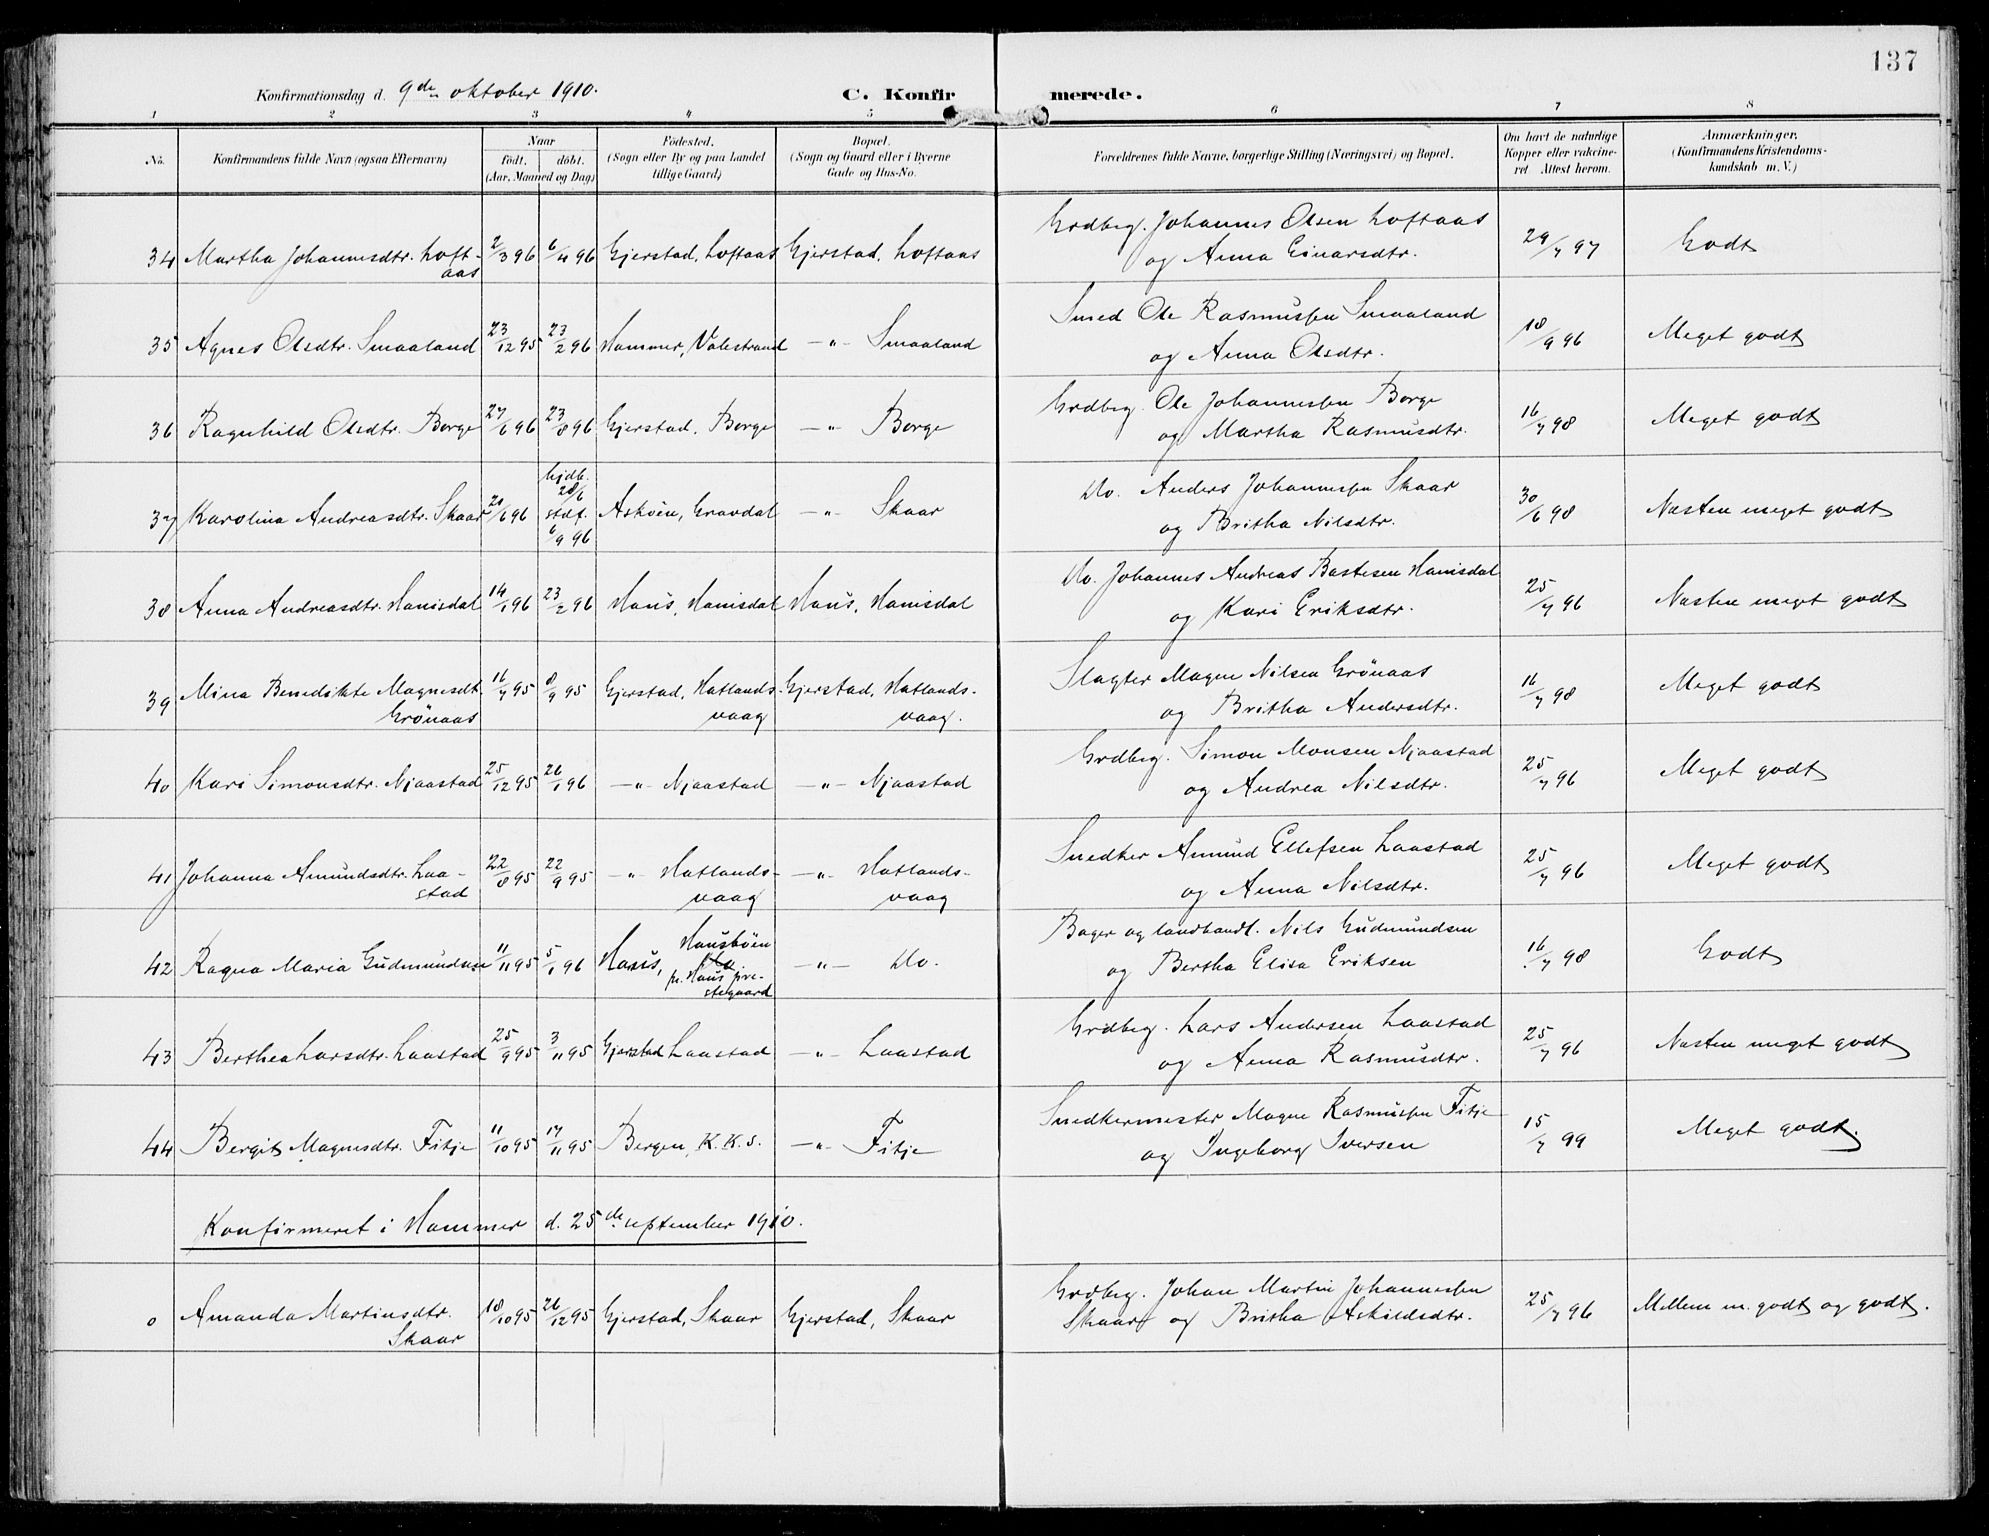 137
Konfirmationsdag d. 9de oktober 1910. C. Konfirmerede.
1 2 3 4 5 6 7 8
No. Konfirmandens fulde Navn (ogsaa Efternavn) Naar födt. döbt. (Aar, Maaned og Dag) Födested. (Sogn eller By og paa Landet tillige Gaard) Bopæl. (Sogn og Gaard eller i Byerne Gade og Hus-No. Forældrenes fulde Navne, borgerlige Stilling (Næringsvei) og Bopæl. Om havt de naturlige Kopper eller vakcineret Attest herom. Anmærkninger, (Konfirmandens Kristendomskundskab m. V.)
34 Martha Johannesdtr. Loftaas 2/3 96 6/4 96 Gjerstad, Loftaas Gjerstad, Loftaas Grdbrg. Johannes Olsen Loftaas og Anna Einarsdtr. 29/7 97 Godt
35 Agnes Olsdtr. Smaaland 23/12 95 23/2 96 Hammer, Valestrand —"— Smaaland Smed Ole Rasmussen Smaaland og Anna Olsdtr. 18/9 96 Meget godt
36 Ragnhild Olsdtr. Borge 27/6 96 23/8 96 Gjerstad, Borge —"— Borge Grdbrg. Ole Johannessen Borge og Martha Rasmusdtr. 16/7 98 Meget godt
37 Karolina Andreasdtr. Skaar 20/6 96 hjdb. 28/6 stdf. 6/9 96 Asköen, Gravdal —"— Skaar Do. Anders Johannessen Skaar og Britha Nilsdtr. 30/6 98 Næsten meget godt
38 Anna Andreasdtr. Hanisdal 14/1 96 23/2 96 Haus, Hanisdal Haus, Hanisdal Do. Johannes Andreas Bastesen Hanisdal og Kari Eriksdtr. 25/7 96 Næsten meget godt
39 Mina Benedikte Magnesdt. Grönaas 16/7 95 8/9 95 Gjerstad, Hatlandsvaag Gjerstad, Hatlandsvaag. Slagter Magne Nilsen Grönaas og Britha Andersdtr. 16/7 98 Meget godt
40 Kari Simonsdtr. Njaastad 25/12 95 26/1 96 —"— Njaastad —"— Njaastad Grdbrg. Simon Monsen Njaastad og Andrea Nilsdtr. 25/7 96 Meget godt
41 Johanna Amundsdtr. Laastad 22/8 95 22/9 95 —"— Hatlandsvaag —"— Hatlandsvaag Snedker Amund Ellefsen Laastad og Anna Nilsdtr. 25/7 96 Meget godt
42 Ragna Maria Gudmundsen 11/11 95 5/1 96 Haus, Hausböen pr. Haus prestegaard —"— Do. Bager og landhandl. Nils Gudmundsen og Bertha Elisa Eriksen 16/7 98 Godt
43 Berthea Larsdtr. Laastad 25/9 95 3/11 95 Gjerstad Laastad —"— Laastad Grdbrg. Lars Andersen Laastad og Anna Rasmusdtr. 25/7 96 Næsten meget godt
44 Bergit Magnesdtr. Fitje 11/10 95 17/11 95 Bergen, K.K.S. —"— Fitje Snedkermester Magne Rasmussen Fitje og Ingeborg Iversen 15/7 99 Meget godt.
Konfirmeret i Hammer d. 25de september 1910.
0 Amanda Martinsdtr. Skaar 18/10 95 26/12 95 Gjerstad, Skaar Gjerstad, Skaar Grdbrg. Johan Martin Johannessen Skaar og Britha Askildsdtr. 25/7 96 Mellem m. godt og godt.